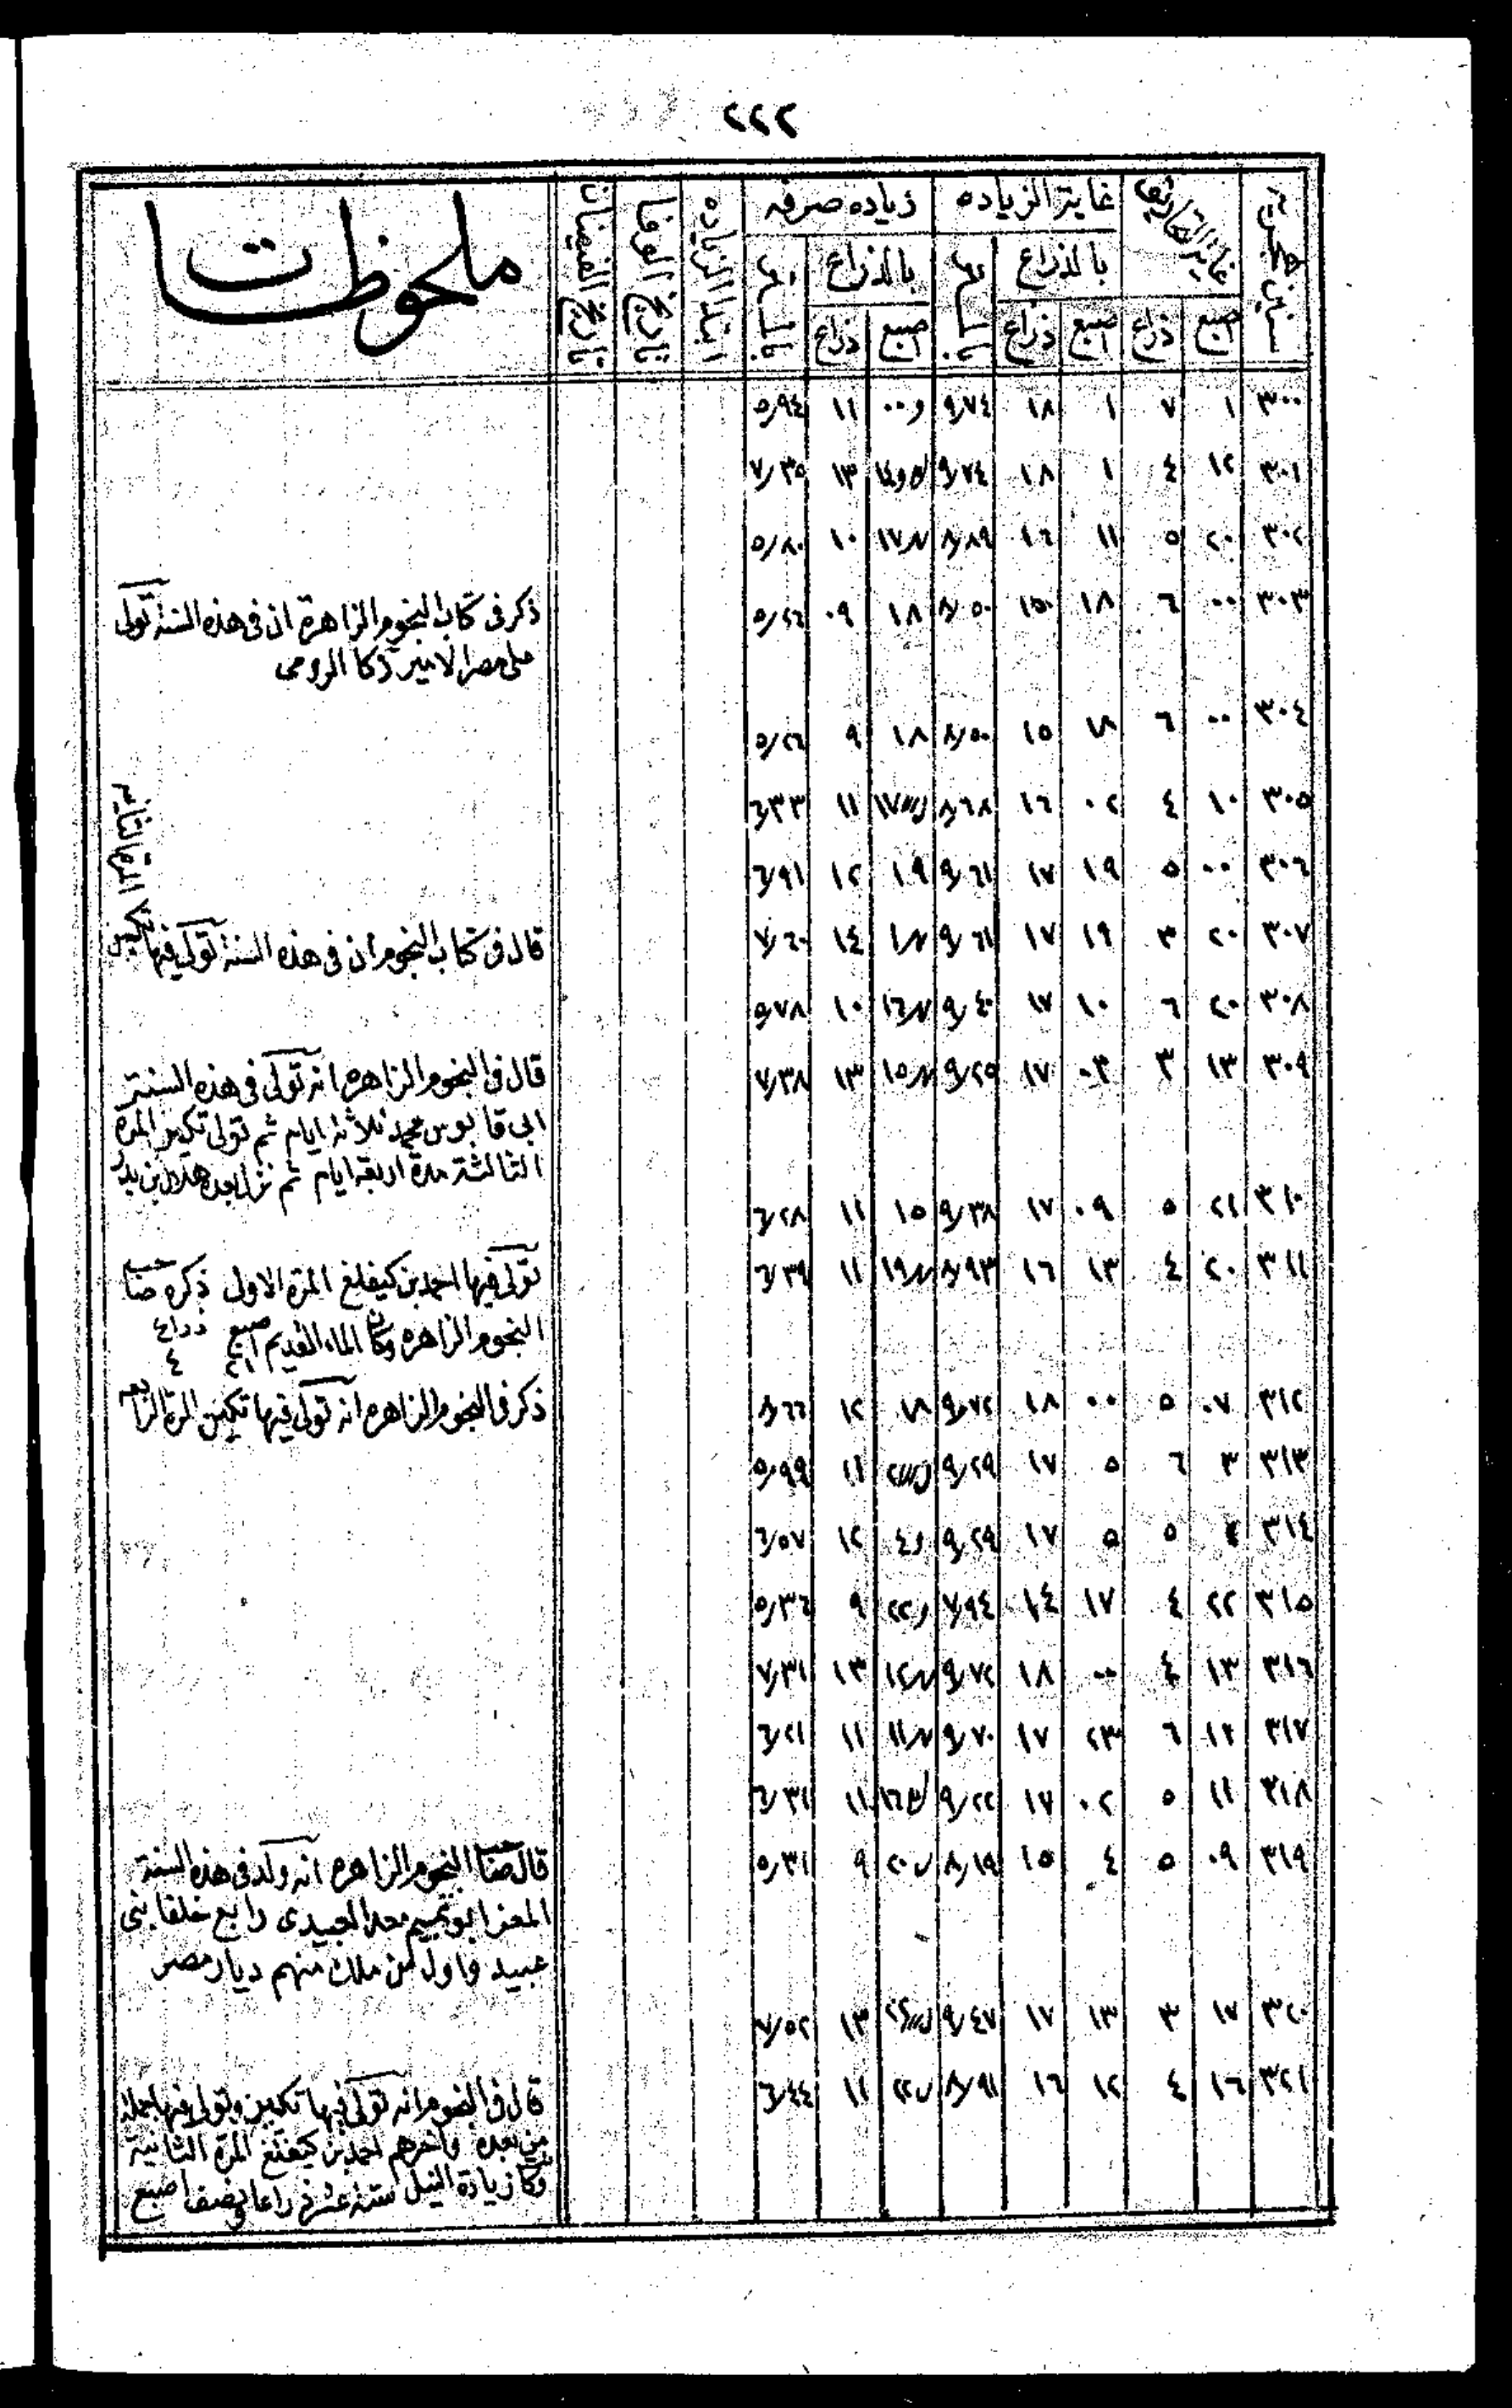 ٢٢٢
سنين هجرية
غاية التحاريق
غاية الزياده
زياده صرفه
ابتدا الزياده
تاريخ الوفا
تاريخ الفيضان
ملحوظات
بالذراع
بالذراع
اصبع ذراع اصبع ذراع اصبع ذراع
٣٠٠ ١ ٧ ١ ١٨ ٩٫٧٤ ١١ ٥٫٩٤
٣٠١ ١٢ ٤ ١ ١٨ ٩٫٧٤ ١٣ ٧٫٣٥
٣٠٢ ٢٠ ٥ ١١ ١٦ ٨٫٨٩ ١٠ ٥٫٨٠
٣٠٣ ٠٠ ٦ ١٨ ١٥ ٨٫٥٠ ١٨ ٠٩ ٥٫٢٦
ذكر فى كتاب النجوم الزاهرة ان فى هذه السنة تولى
على مصر الامير ذكا الرومى
٣٠٤ ٠٠ ٦ ١٨ ١٥ ٨٫٥٠ ١٨ ٩ ٥٫٢٦
٣٠٥ ١٠ ٤ ٠٢ ١٦ ٨٫٦٨ ١١ ٦٫٣٣
٣٠٦ ٠٠ ٥ ١٩ ١٧ ٩٫٦١ ١٩ ١٢ ٦٫٩١
٣٠٧ ٢٠ ٣ ١٩ ١٧ ٩٫٦١ ١٤ ٧٫٦٠
قال فى كتاب النجوم ان فى هذه السنة تولى فيها تكين المرة الثانيه
٣٠٨ ٢٠ ٦ ١٠ ١٧ ٩٫٤٠ ١٠ ٥٫٧٨
٣٠٩ ١٣ ٣ ٠٣ ١٧ ٩٫٢٥ ١٣ ٧٫٣٨
قال فى النجوم الزاهره انه تولى فى هذه السنة
ابى قابوس محمد ثلاثة ايام ثم تولى تكين المرة
الثالثة مدة اربعة ايام ثم نزل بعده هلال بن بدر
٣١٠ ٢١ ٥ ٠٩ ١٧ ٩٫٣٨ ١٥ ١١ ٦٫٢٨
٣١١ ٢٠ ٤ ١٣ ١٦ ٨٫٩٣ ١١ ٦٫٣٩
تولى فيها احمد بن كيغلغ المرة الاولى ذكره صاحب
النجوم الزاهره وكان الماء القديم اصبع ذراع
٢١ ٤
٣١٢ ٠٧ ٥ ٠٠ ١٨ ٩٫٧٢ ١٢ ٨٫٦٦
ذكر فى النجوم الزاهره انه تولى فيها تكين المرة الرابعه
٣١٣ ٣ ٦ ٥ ١٧ ٩٫٢٩ ١١ ٥٫٩٩
٣١٤ ٥ ٥ ١٧ ٩٫٢٩ ١٢ ٦٫٥٧
٣١٥ ٢٢ ٤ ١٧ ١٤ ٧٫٩٤ ٩ ٥٫٣٦
٣١٦ ١٣ ٤ ٠٠ ١٨ ٩٫٧٢ ١٣ ٧٫٣١
٣١٧ ١٢ ٦ ٢٣ ١٧ ٩٫٧٠ ١١ ٦٫٢١
٣١٨ ١١ ٥ ٠٢ ١٧ ٩٫٢٢ ١١ ٦٫٣١
٣١٩ ٠٩ ٥ ٤ ١٥ ٨٫١٩ ٩ ٥٫٣١
قال صاحب النجوم الزاهره انه ولد فى هذه السنة
المعز ابو تميم معد العبيدى رابع خلفا بنى
عبيد واول من ملك منهم ديار مصر
٣٢٠ ١٧ ٣ ١٣ ١٧ ٩٫٤٧ ١٣ ٧٫٥٢
٣٢١ ١٦ ٤ ١٢ ١٦ ٨٫٩١ ١١ ٦٫٤٤
قال فى النجوم انه تولى فيها تكين وتولى فيها جملة
من بعده واخرهم احمد بن كيغلغ المرة الثانية
وكان زيادة النيل ستة عشر ذراعا ونصف اصبع